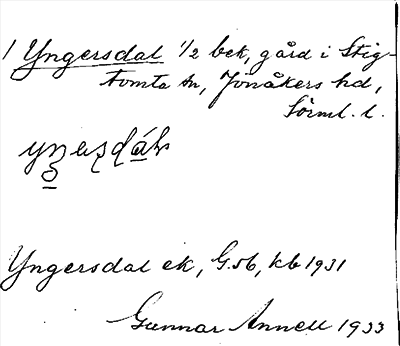 1 Yngersdal 1/2 bek, gård i Stig-
tomta sn, Jönåkers hd,
Sörml. l.
Yngersdal ek, G.56, kb 1931
Gunnar Annell 1933